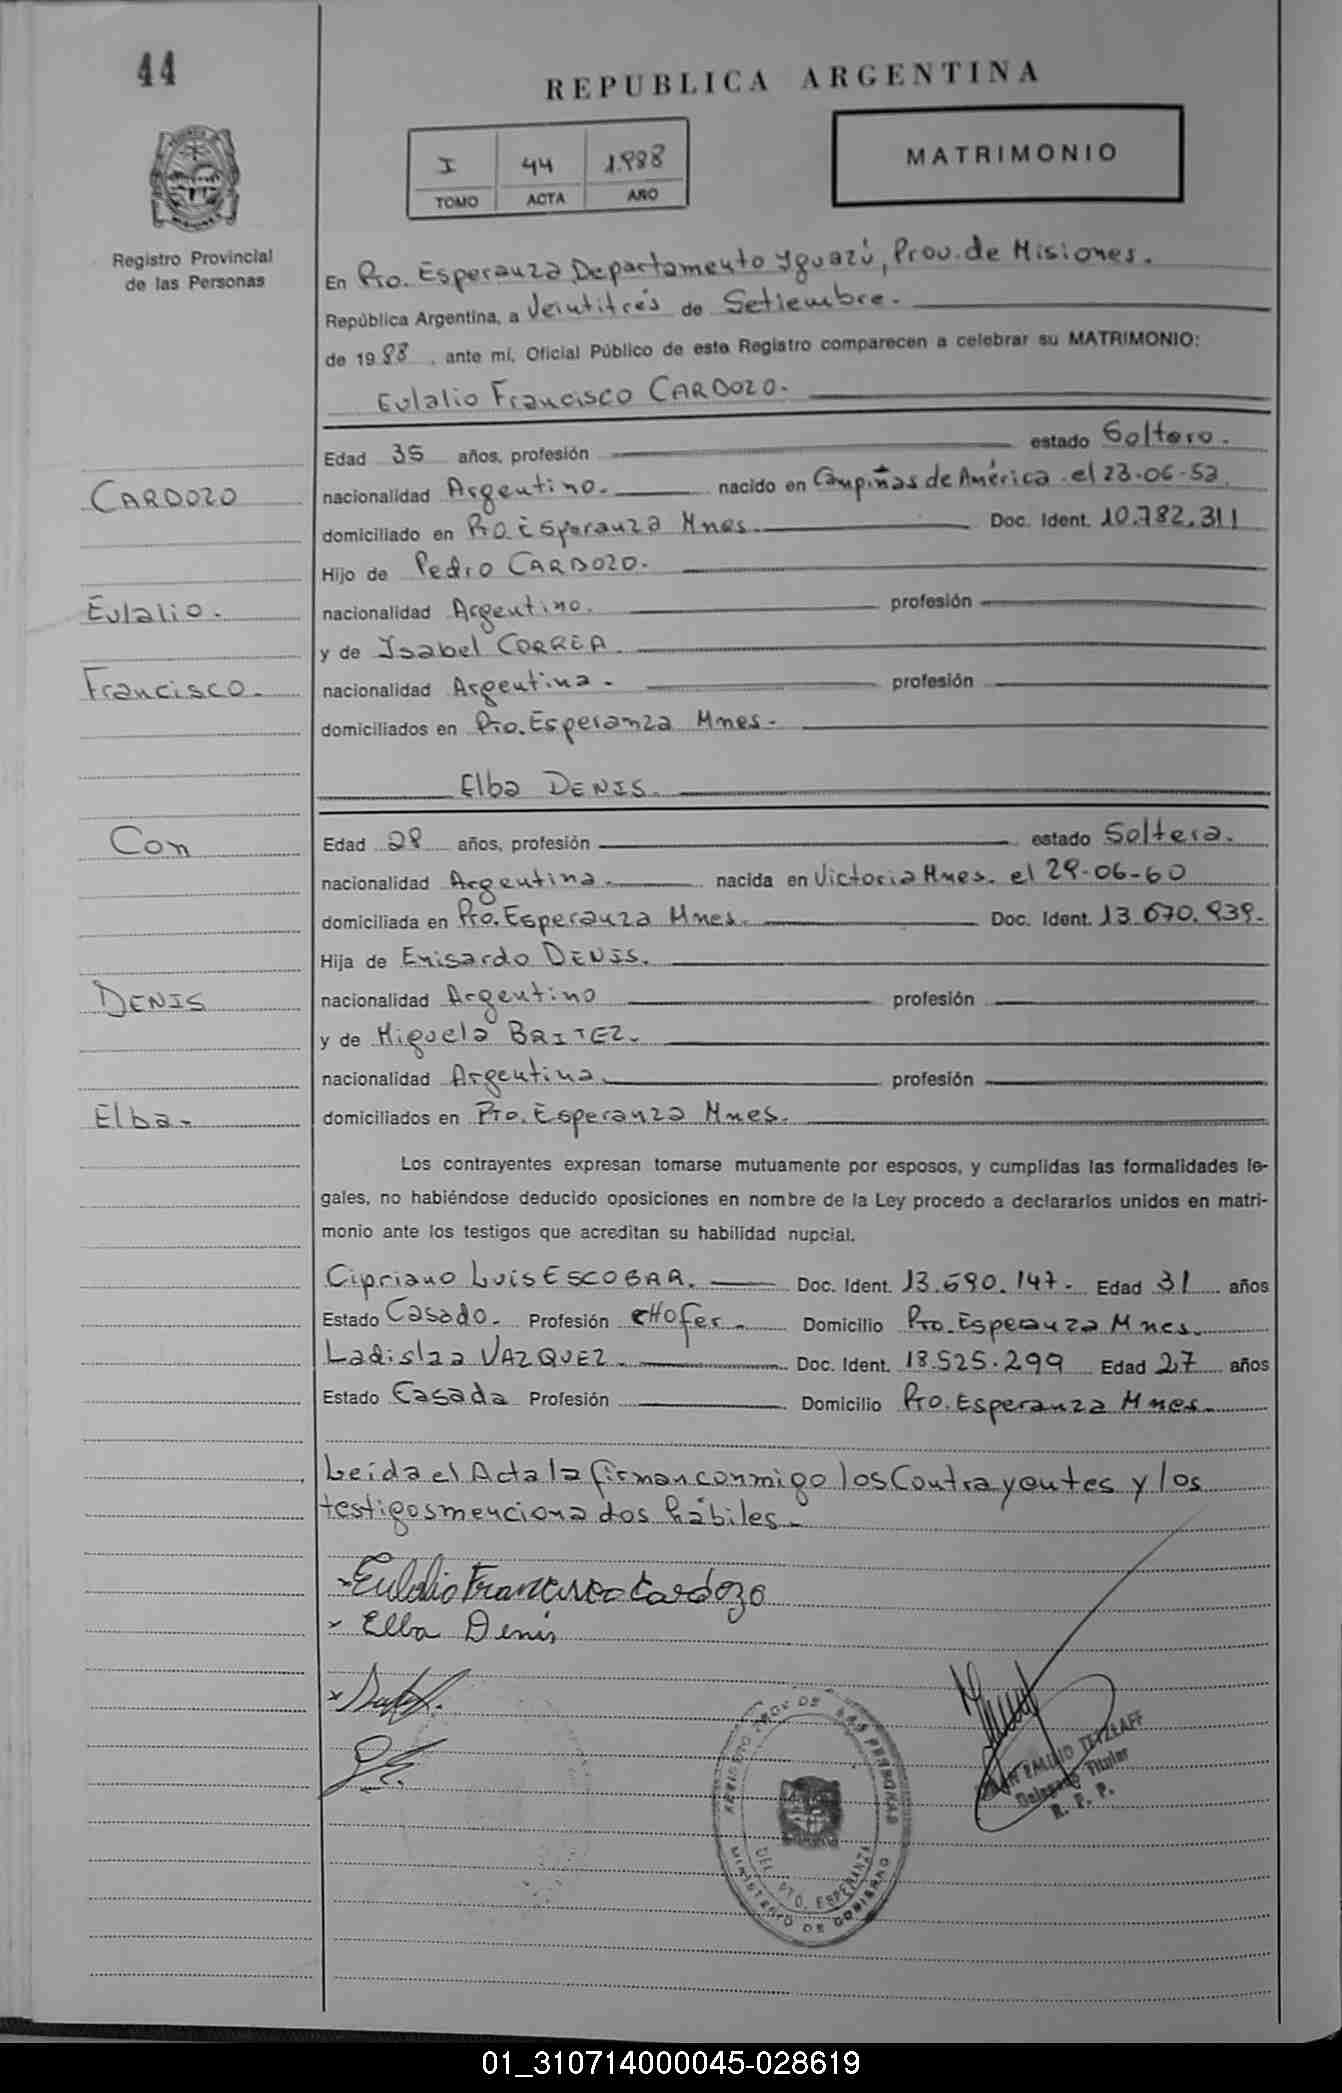 44
REPUBLICA ARGENTINA
I 44 1.988
TOMO ACTA AÑO
MATRIMONIO
Registro Provincial
de las Personas
En Pto. Esperanza Departamento Yguazú, Prov. de Misiones.
República Argentina, a Veintitrés de Setiembre.
de 1988, ante mí, Oficial Público de este Registro comparecen a celebrar su MATRIMONIO:
Eulalio Francisco CARDOZO.
Edad 35 años, profesión estado Soltero.
CARDOZO
nacionalidad Argentino. nacido en Campiñas de América el 23-06-53.
domiciliado en Pto. Esperanza Mnes. Doc. Ident. 10.782.311
Hijo de Pedro CARDOZO.
Eulalio.
nacionalidad Argentino. profesión
y de Isabel CORREA.
Francisco.
nacionalidad Argentina. profesión
domiciliados en Pto. Esperanza Mnes.
Elba DENIS.
Con
Edad 28 años, profesión estado Soltera.
nacionalidad Argentina. nacida en Victoria Mnes. el 29-06-60
domiciliada en Pto. Esperanza Mnes. Doc. Ident. 13.670.939.
Hija de Enisardo DENIS.
DENIS
nacionalidad Argentino profesión
y de Miguela BRITEZ.
nacionalidad Argentina. profesión
Elba.
domiciliados en Pto. Esperanza Mnes.
Los contrayentes expresan tomarse mutuamente por esposos, y cumplidas las formalidades le-
gales, no habiéndose deducido oposiciones en nombre de la Ley procedo a declararlos unidos en matri-
monio ante los testigos que acreditan su habilidad nupcial.
Cipriano Luis ESCOBAR. Doc. Ident. 13.690.147. Edad 31 años
Estado Casado. Profesión CHofer. Domicilio Pto. Esperanza Mnes.
Ladislaa VAZQUEZ. Doc. Ident. 18.525.299 Edad 27 años
Estado Casada Profesión Domicilio Pto. Esperanza Mnes.
Leída el Acta la firman conmigo los Contrayentes y los
testigos mencionados hábiles.
Eulalio Francisco Cardozo
x Elba Denis
REGISTRO PROV. DE LAS PERSONAS
DEL. PTO. ESPERANZA
MINISTERIO DE GOBIERNO
EMILIO TETZLAFF
Delegado Titular
R. P. P.
01_310714000045-028619